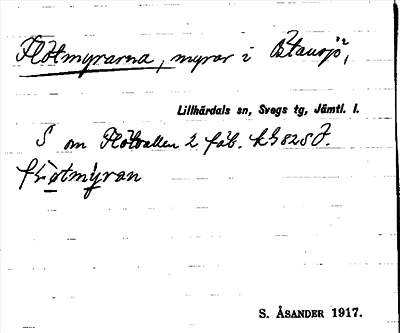 Flötmyrarna, myrar i
Lillhärdals sn, Svegs tg, Jämtl. l.
S om Flötvallen 2 fäb.
flötmyran
S. ÅSANDER 1917.